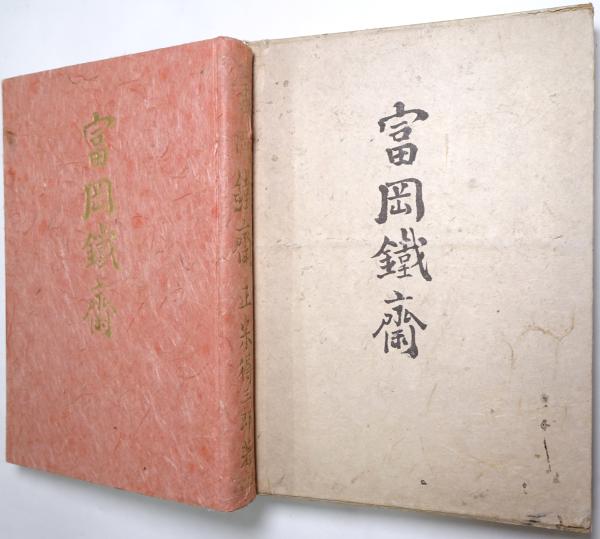 富岡鐵齋
富岡鐵齋 正宗得三郎著
富岡鐵齋